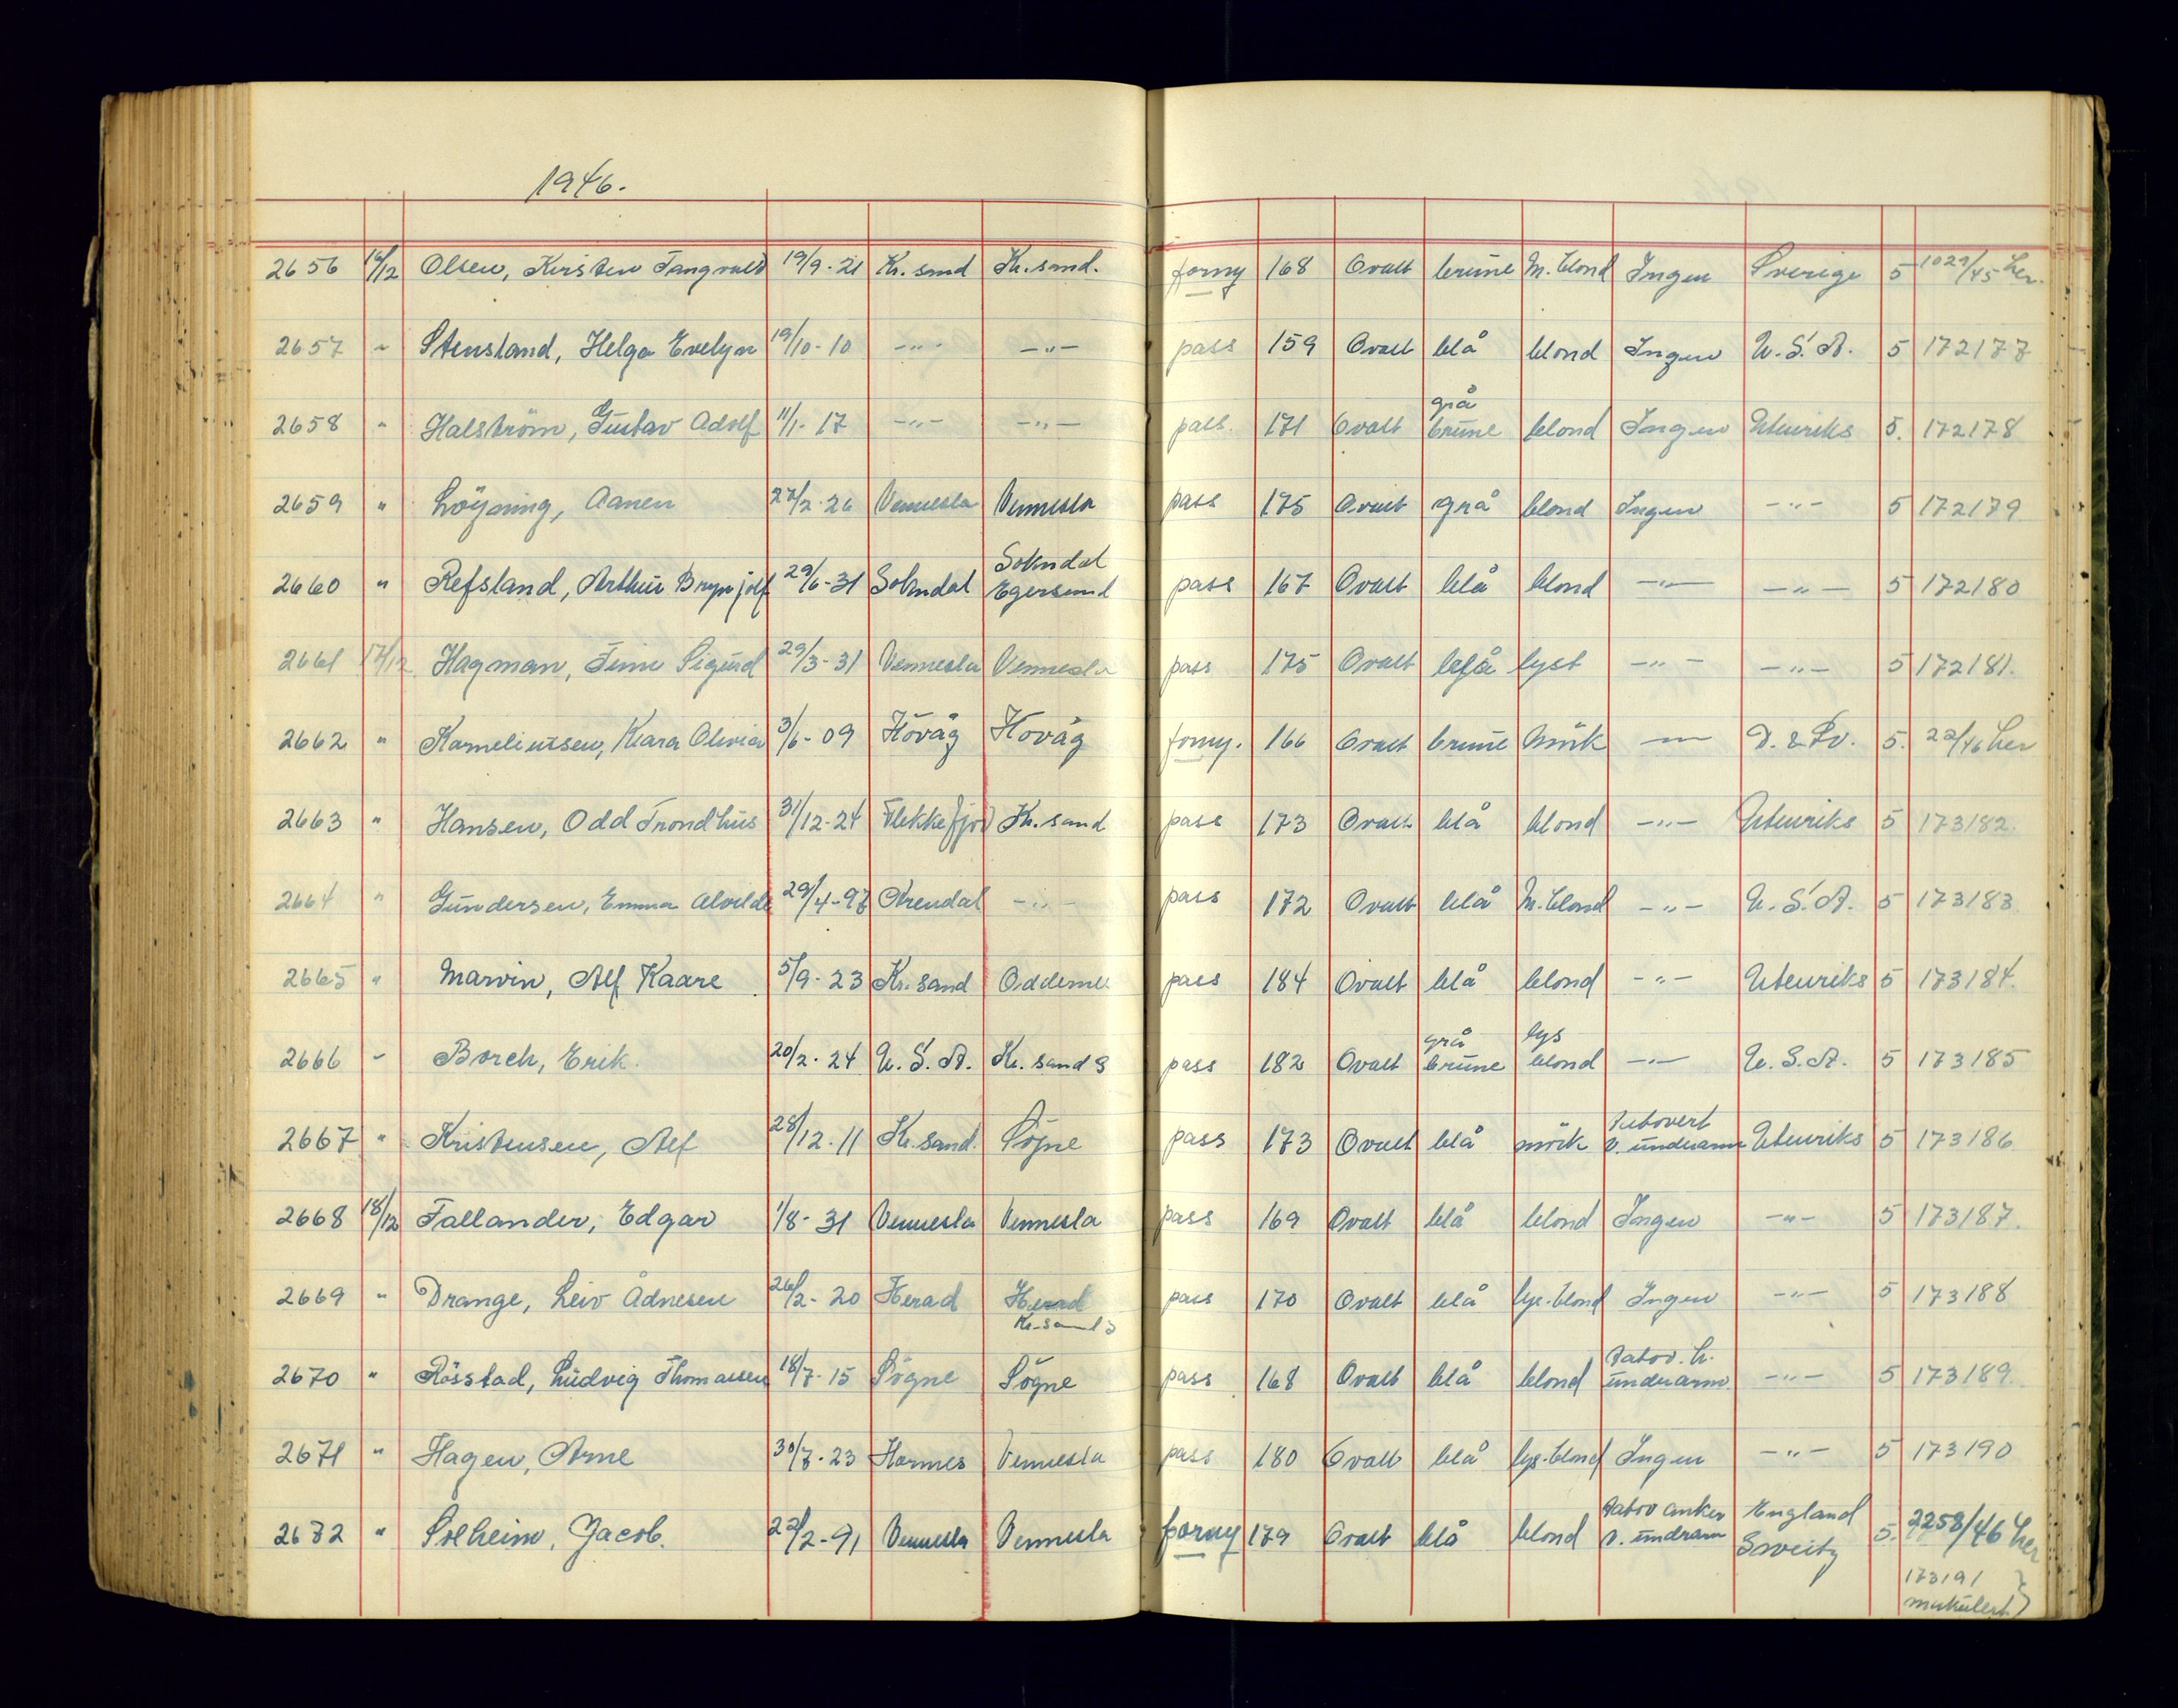 1946.
2656 16/12 Olsen, Kirsten Tangvald 19/9-21 Kr. sand Kr. sand. forny 168 Ovalt brune M. blond Ingen Sverige 5 1029/45 her.
2657 " Stensland, Helga Evelyn 19/10-10 -"- -"- pass 159 Ovalt blå blond Ingen U.S.A. 5 172177
grå
2658 " Halström, Gustav Adolf 11/1-17 -"- -"- pass. 171 Ovalt brune blond Ingen Utenriks 5. 172178
2659 " Löyning, Aanen 27/2-26 Vennesla Vennesla pass 175 Ovalt grå blond Ingen -"- 5 172179
Sokndal
2660 " Refsland, Arthur Brynjolf 29/6-31 Sokndal Egersund pass 167 Ovalt blå blond -"- -"- 5 172180
2661 17/12 Hagman, Sigurd 29/3-31 Vennesla Vennesla pass 175 Ovalt blå lyst -"- -"- 5 172181.
2662 " Korneliussen, Klara Olivia 3/6-09 Höväg Höväg forny. 166 Ovalt brune mörk -"- D. & Sv. 5. 22/46 her
2663 " Hansen, Odd Trondhus 31/12-24 Flekkefjord Kr. sand pass 173 Ovalt blå blond -"- Utenriks 5 173182.
2664 " Gundersen, Emma Alvilde 29/4-97 Arendal -"- pass 172 Ovalt blå M. blond -"- U.S.A. 5 173183
2665 " Marvin, Alf Kaare 5/9-23 Kr. sand Oddernes pass 184 Ovalt blå blond -"- Utenriks 5 173184.
grå lys
2666 " Borch, Erik. 20/2-24 U.S.A. Kr. sand S pass 182 Ovalt brune blond -"- U.S.A. 5 173185
Tatovert
2667 " Kristensen, Alf 28/12-11 Kr. sand. Sögne pass 173 Ovalt blå mörk v. underarm Utenriks 5 173186
2668 18/12 Fallander, Edgar 1/8-31 Vennesla Vennesla pass 169 Ovalt blå blond Ingen -"- 5 173187.
2669 " Drange, Leiv Ådnesen 26/2-20 Herad Herad pass 170 Ovalt blå lys-blond Ingen -"- 5 173188
Kr. sand S
Tatov. h.
2670 " Rösstad, Ludvig Thomassen 18/7-15 Sögne Sögne pass 168 Ovalt blå blond underarm. -"- 5 173189.
2671 " Hagen, Arne 30/7-23 Hornnes Vennesla pass 180 Ovalt blå lys-blond Ingen -"- 5 173190
Tatov anker England
2672 " Solheim, Jacob. 22/2-91 Vennesla Vennesla forny 179 Ovalt blå blond v. undrarm Sweitz 5. 2258/46 her
173191
makulert